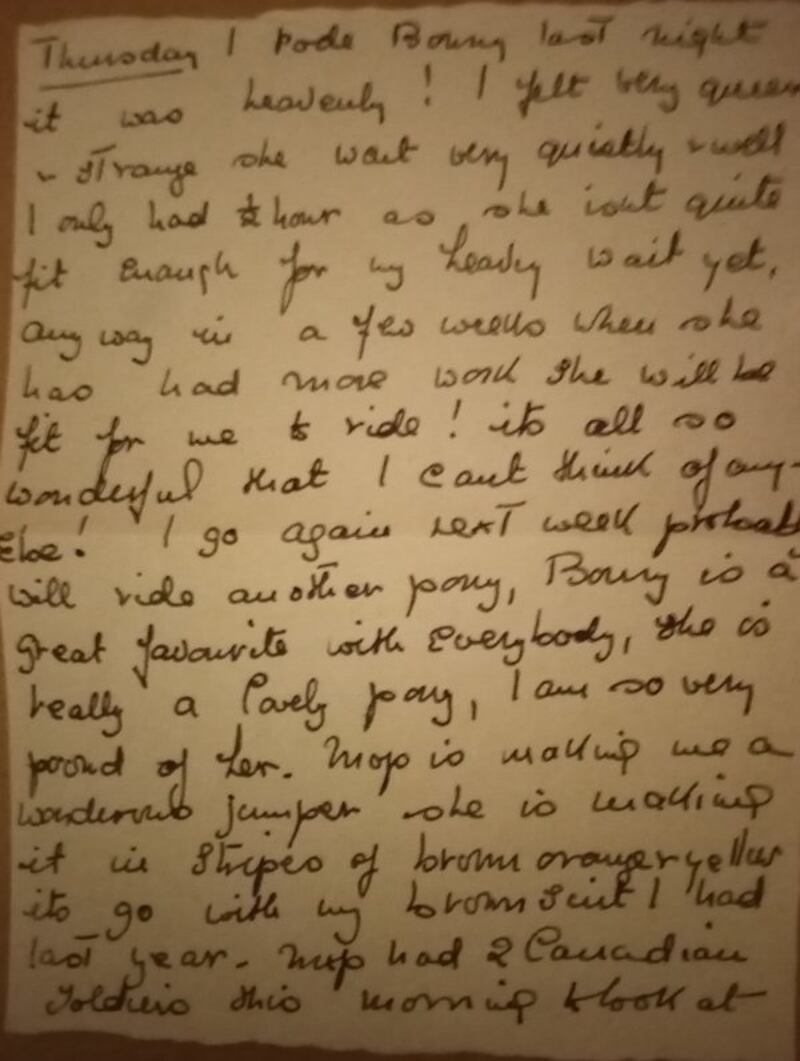 Thursday I rode Bonny last night
it was heavenly! I felt very queer
& strange she want very quietly & well
I only had ½ hour as she isnt quite
fit enough for my heavy wait yet,
any way in a few weeks when she
has had more work she will be
fit for me to ride! its all so
wonderful that I cant think of any-
else! I go again next week probabl
will ride another pony, Bonny is a
great favourite with everybody, she is
really a lovely pony, I am so very
proud of her. Mop is making me a
jumper she is making
it in stripes of brown orange & yellow
its go with my brown suit I had
last year. Mop had 2 Canadian
soldiers this morning to look at